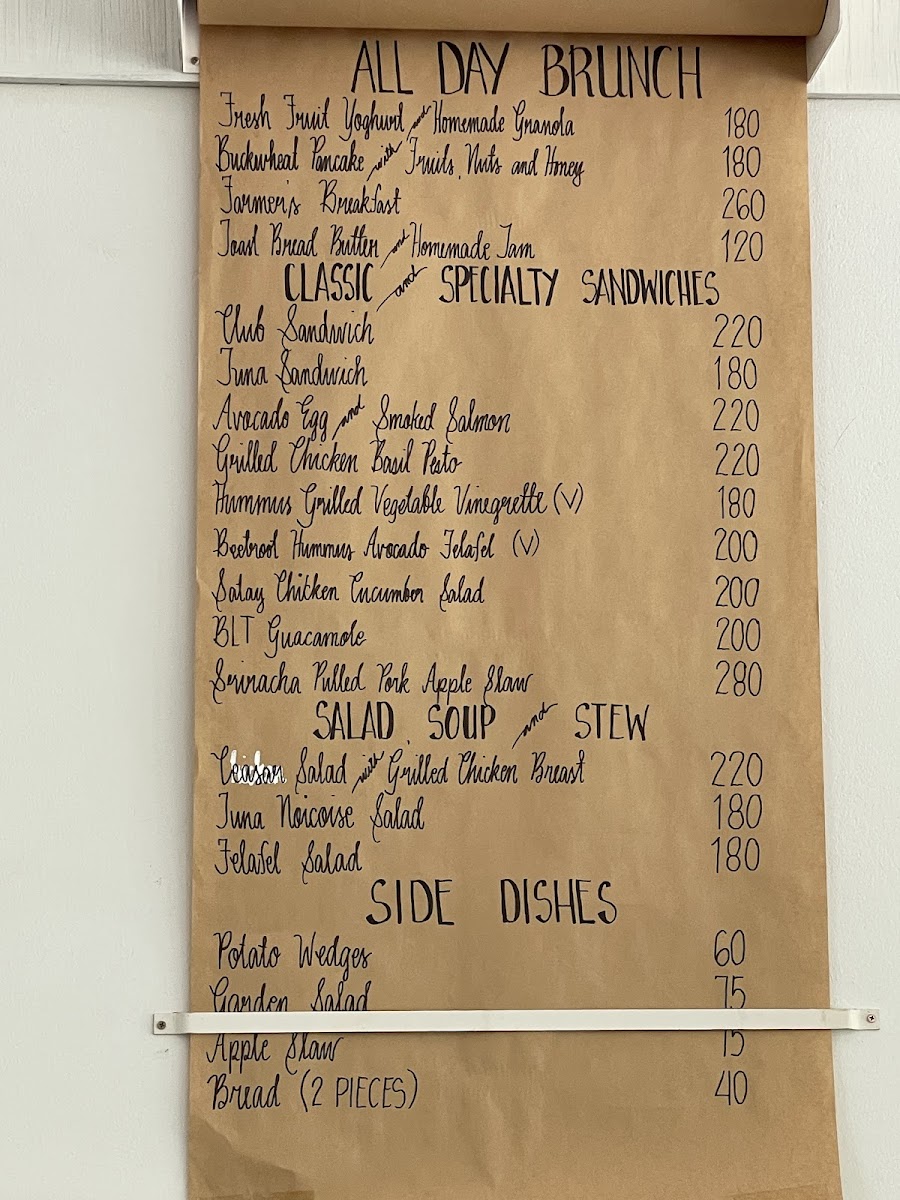 ALL DAY BRUNCH
Fresh Fruit Yoghurt and Homemade Granola 180
Buckwheat Pancake with Fruits, Nuts and Honey 180
Farmer's Breakfast 260
Toast Bread Butter and Homemade Jam 120
CLASSIC and SPECIALTY SANDWICHES
Club Sandwich 220
Tuna Sandwich 180
Avocado Egg and Smoked Salmon 220
Grilled Chicken Basil Pesto 220
Hummus Grilled Vegetable Vinegerette (V) 180
Beetroot Hummus Avocado Felafel (V) 200
Satay Chicken Cucumber Salad 200
BLT Guacamole 200
Sriracha Pulled Pork Apple Slaw 280
SALAD, SOUP and STEW
Salad with Grilled Chicken Breast 220
Tuna Noicoise Salad 180
Felafel Salad 180
SIDE DISHES
Potato Wedges 60
Garden Salad 75
Apple Slaw
Bread (2 PIECES) 40